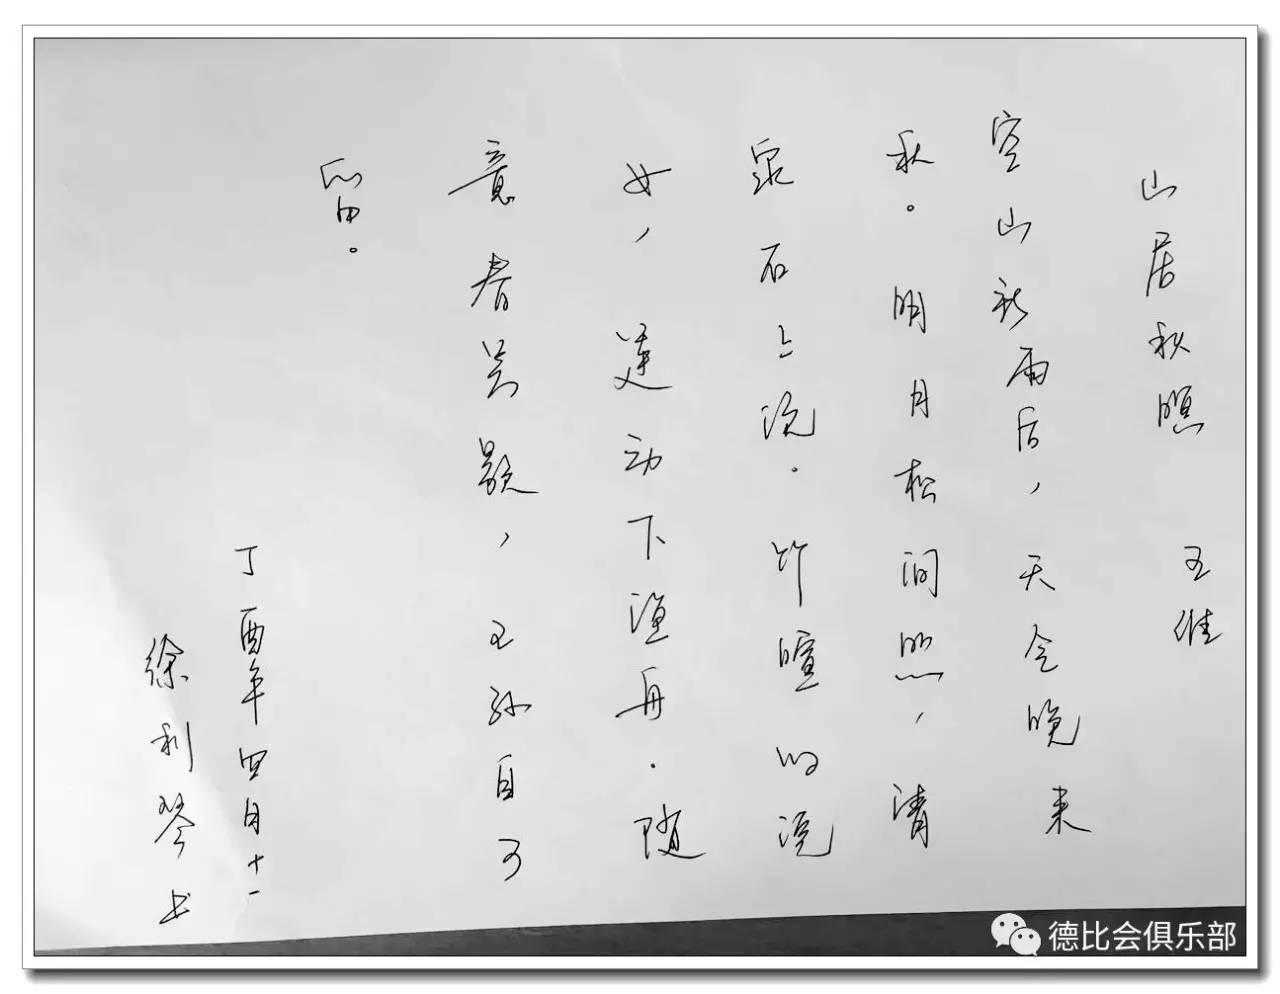 山居秋暝 王维
空山新雨后，天气晚来
秋。明月松间照，清
泉石上流．竹喧归浣
女，莲动下渔舟．随
意春芳歇，王孙自可
留。
丁酉年四月十一
徐利琴书
德比会俱乐部